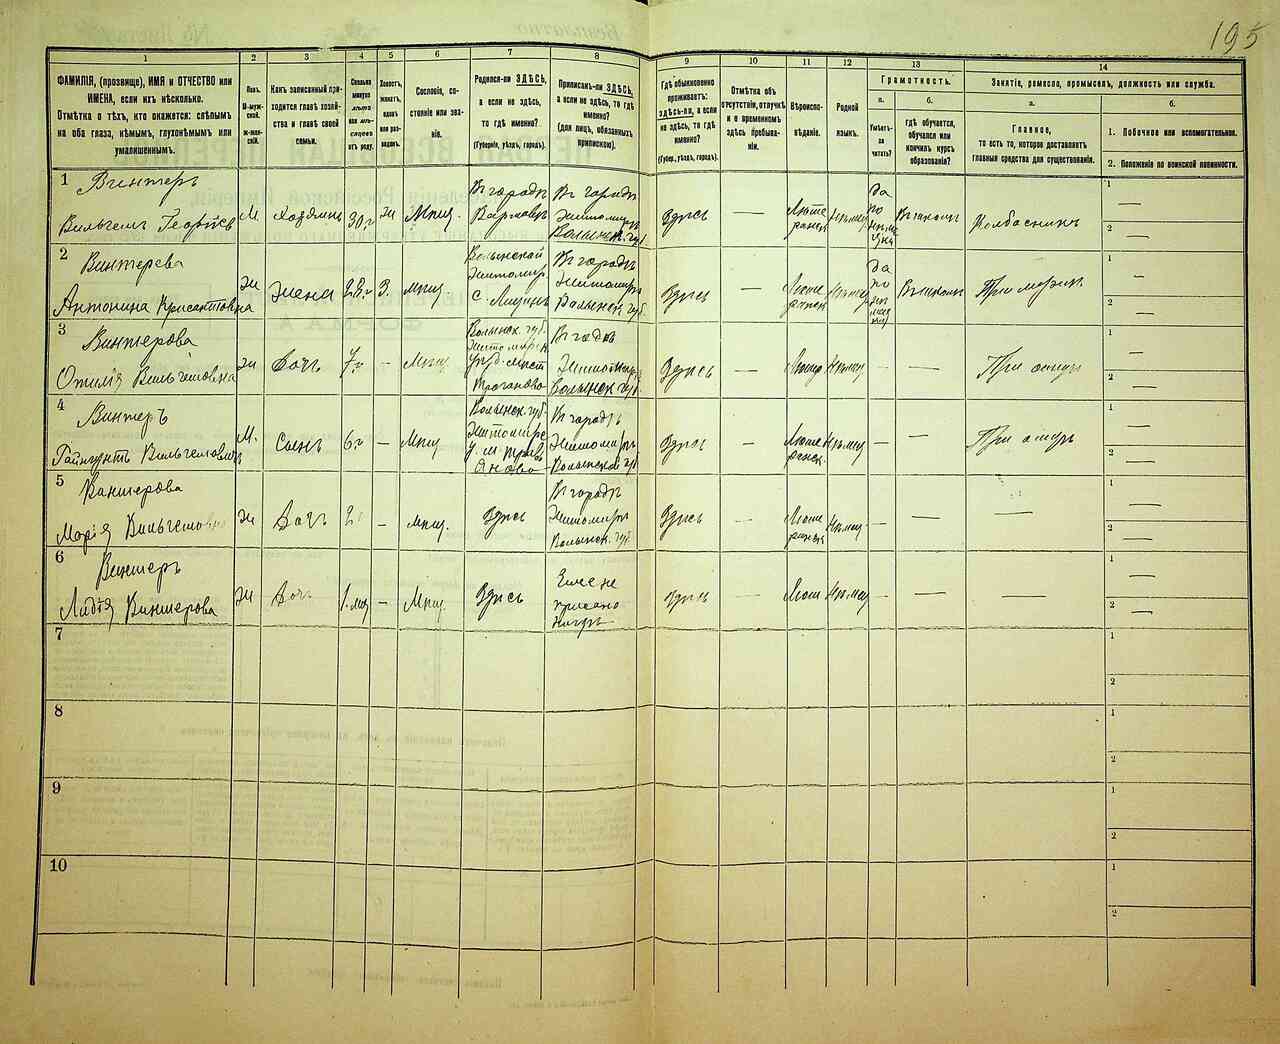 195
1
2
3
4
5
6
7
8
9
10
11
12
13
14
ФАМИЛІЯ, (прозвище), ИМЯ и ОТЧЕСТВО или
ИМЕНА, если ихъ нѣсколько.
Отмѣтка о тѣхъ, кто окажется: слѣпымъ
на оба глаза, нѣмымъ, глухонѣмымъ или
умалишеннымъ.
Полъ.
М-муж-
ской.
Ж-жен-
скій.
Какъ записанный при-
ходится главѣ хозяй-
ства и главѣ своей
семьи.
Сколько
минуло
лѣтъ
или мѣ-
сяцевъ
отъ роду.
Холостъ,
женатъ,
вдовъ
или раз-
веденъ.
Сословіе, со-
стояніе или зва-
ніе.
Родился-ли ЗДѢСЬ,
а если не здѣсь,
то гдѣ именно?
(Губернія, уѣздъ, городъ).
Приписанъ-ли ЗДѢСЬ,
а если не здѣсь, то гдѣ
именно?
(для лицъ, обязанныхъ
припискою).
Гдѣ обыкновенно
проживаетъ:
здѣсь-ли, а если
не здѣсь, то гдѣ
именно?
(Губер., уѣздъ, городъ).
Отмѣтка объ
отсутствіи, отлучкѣ
и о временномъ
здѣсь пребыва-
ніи.
Вѣроиспо-
вѣданіе.
Родной
языкъ.
Грамотность.
а.
Умѣетъ-
ли
читать?
б.
гдѣ обучается,
обучался или
кончилъ курсъ
образованія?
Занятіе, ремесло, промыселъ, должность или служба.
а.
Главное,
то есть то, которое доставляетъ
главныя средства для существованія.
б.
1. Побочное или вспомогательное.
2. Положеніе по воинской повинности.
1
Винтеръ
Вильгемъ Георгіев
М
Хозяинъ
30 г
ж
Мѣщ.
Въ городѣ
Варшавѣ
Въ городѣ
Житомирѣ
Волынск. губ.
Здѣсь
—
Люте
ранск
Нѣмец
да
по
нѣме
цки
В школѣ
Колбасникъ
1
—
2
—
2
Винтерева
Антонина
Ж
Жена
28 г
З.
Мѣщ
Волынской
Житомир.
Въ городѣ
Житомирѣ
Волынск губ.
Здѣсь
—
Люте
ранск
Нѣмец
да
по
В школѣ
При мужѣ
1
—
2
—
3
Винтерова
Отилія Вильгемовна
Ж
Дочь
7 г
-
Мѣщ.
Волынск. губ.
Житомирск
Въ городѣ
Житомирѣ
Волынск губ.
Здѣсь
—
Лютер
Нѣмец
—
—
При отцѣ
1
—
2
—
4
Винтеръ
М.
Сынъ
6 г
—
Мѣщ
Волынск. губ.
Житомирс
Въ городѣ
Житомирѣ
Волынской губ
Здѣсь
—
Люте
ранск.
Нѣмец
—
—
При отцѣ
1
—
2
—
5
Винтерова
Марія Вильгемовна
Ж
Дочь
2 г
-
Мѣщ.
Здѣсь
Въ городѣ
Житомирѣ
Волынск. губ.
Здѣсь
—
Люте
ранск
Нѣмец.
—
—
—
1
—
2
—
6
Винтеръ
Лидія Винтерова
Ж
Дочь
1 мѣс
—
Мѣщ.
Здѣсь
Еще не
Здѣсь
—
Люте
Нѣмец
—
—
—
1
—
2
—
7
1
2
8
1
2
9
1
2
10
1
2